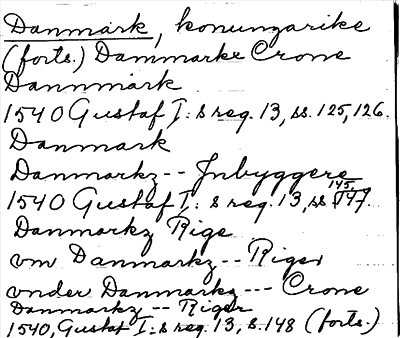 Danmark, konungarike
(forts.) Danmarks Crone
Dannmark
1540 Gustaf I:s reg. 13, ss. 125, 126.
Danmark
Danmarkz -- Inbyggere
1540 Gustaf I:s reg. 13, ss 145, 147.
Danmarkz Rige
vm Danmarkz -- Riger
vnder Danmarkz --- Crone
Danmarkz -- Riger
1540, Gustaf I:s reg. 13, s. 148 (forts.)